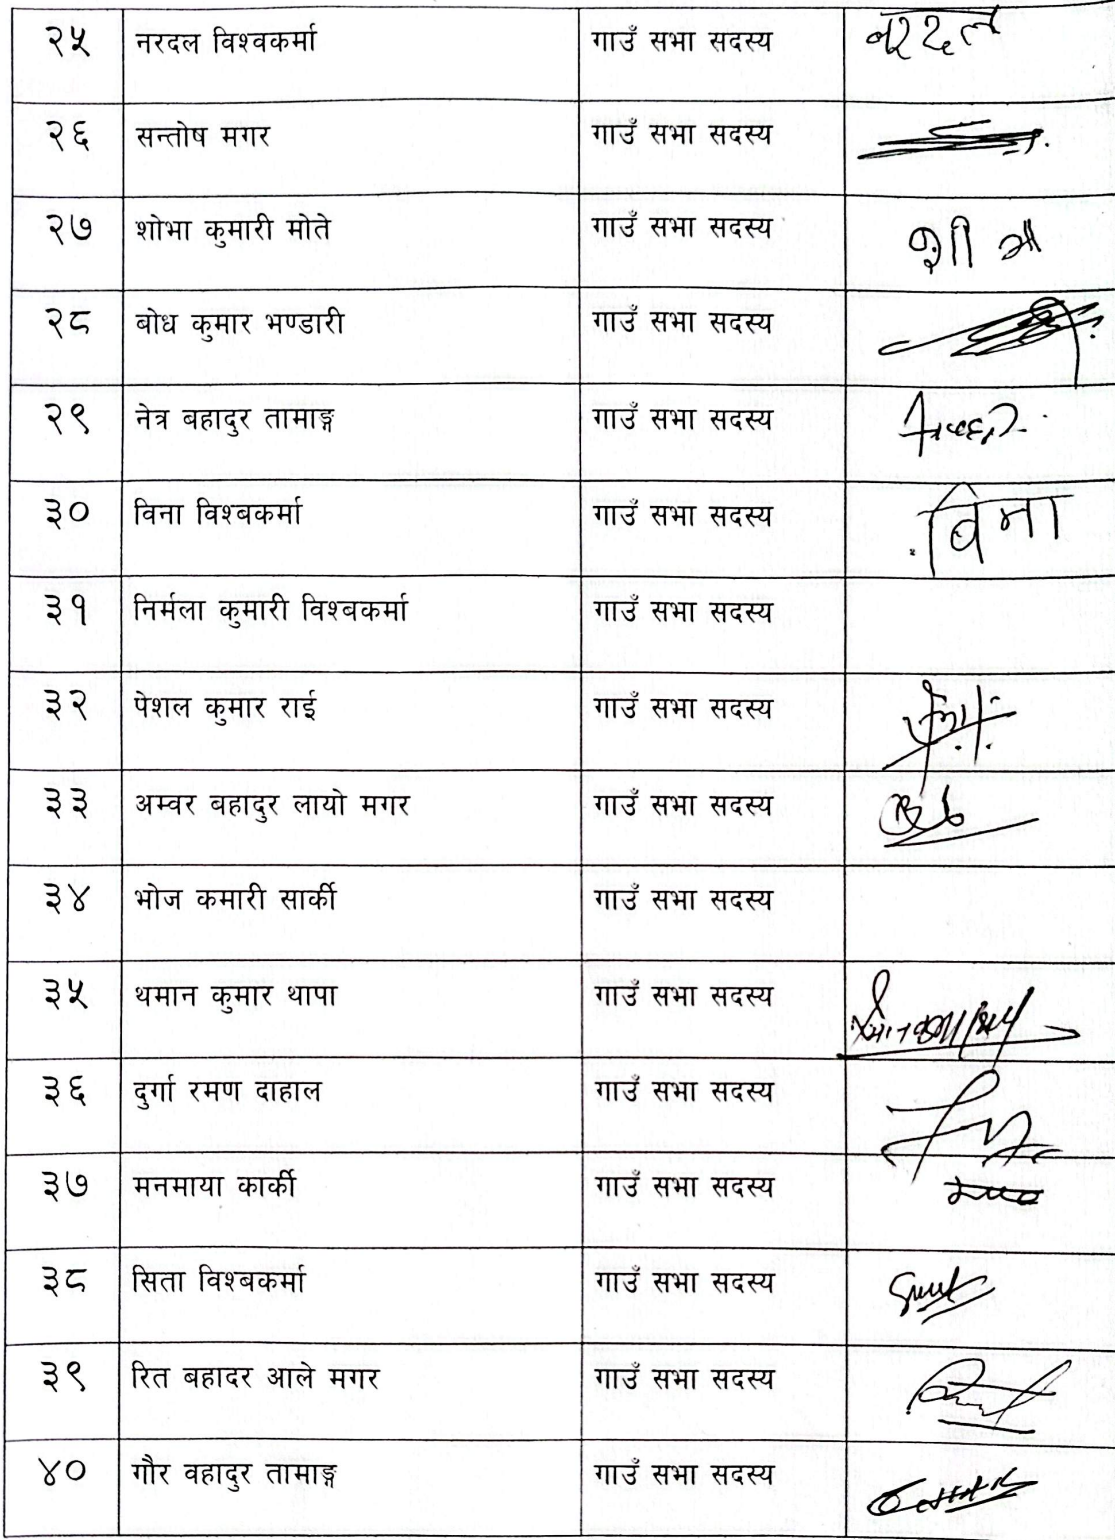 २५ नरदल विश्वकर्मा गाउँ सभा सदस्य नरदल
२६ सन्तोष मगर गाउँ सभा सदस्य
२७ शोभा कुमारी मोते गाउँ सभा सदस्य
२८ बोध कुमार भण्डारी गाउँ सभा सदस्य
२९ नेत्र बहादुर तामाङ्ग गाउँ सभा सदस्य
३० विना विश्बकर्मा गाउँ सभा सदस्य विना
३१ निर्मला कुमारी विश्बकर्मा गाउँ सभा सदस्य
३२ पेशल कुमार राई गाउँ सभा सदस्य
३३ अम्वर बहादुर लायो मगर गाउँ सभा सदस्य
३४ भोज कमारी सार्की गाउँ सभा सदस्य
३५ थमान कुमार थापा गाउँ सभा सदस्य
३६ दुर्गा रमण दाहाल गाउँ सभा सदस्य
३७ मनमाया कार्की गाउँ सभा सदस्य
३८ सिता विश्बकर्मा गाउँ सभा सदस्य
३९ रित बहादर आले मगर गाउँ सभा सदस्य
४० गौर वहादुर तामाङ्ग गाउँ सभा सदस्य